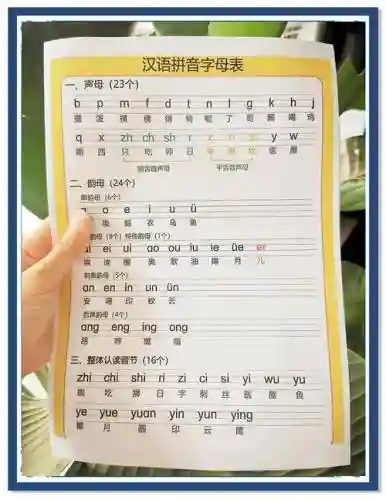 汉语拼音字母表
一、声母（23个）
b p m f d t n l g k h j
播 泼 摸 佛 得 特 呢 了 哥 颗 喝 鸡
q x zh ch sh r y w
期 西 只 吃 师 日 医 屋
翘舌音声母 平舌音声母
二、韵母（24个）
单韵母（6个）
o e i u ü
衣 乌 鱼
韵母（8个）特殊韵母（1个）
ai ei ui ao ou iu ie üe er
奥 欧 油 椰 月 儿
前鼻韵母（5个）
an en in un ün
安 恩 印 蚊 云
后鼻韵母（4个）
ang eng ing ong
鹰
三、整体认读音节（16个）
zhi chi shi ri zi ci si yi wu yu
吃 狮 日 字 刺 丝 医 屋 鱼
ye yue yuan yin yun ying
椰 月 圆 印 云 鹰